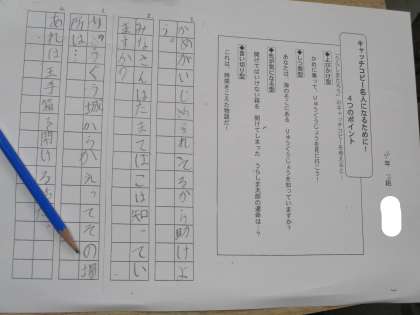 キャッチコピー名人になるために!
4つのポイント
年 組
「うらしまたろう」のキャッチコピーを考えると…
◆よびかけ型
かめに乗って、りゅうぐうじょうを見に行こう!
◆しつ問型
あなたは、海のそこにある りゅうぐうじょうを知っていますか?
◆先が気になる型
開けてはいけない箱を 開けてしまった うらしま太郎の運命は…?
◆言い切り型
これは、時間をこえた物語だ!
かめがいじめられてるから助けよ
う。
みなさんはたまてばこは知ってい
ますか?
りゅうぐう城からかえってその場
所は…
あれは玉手箱を開い